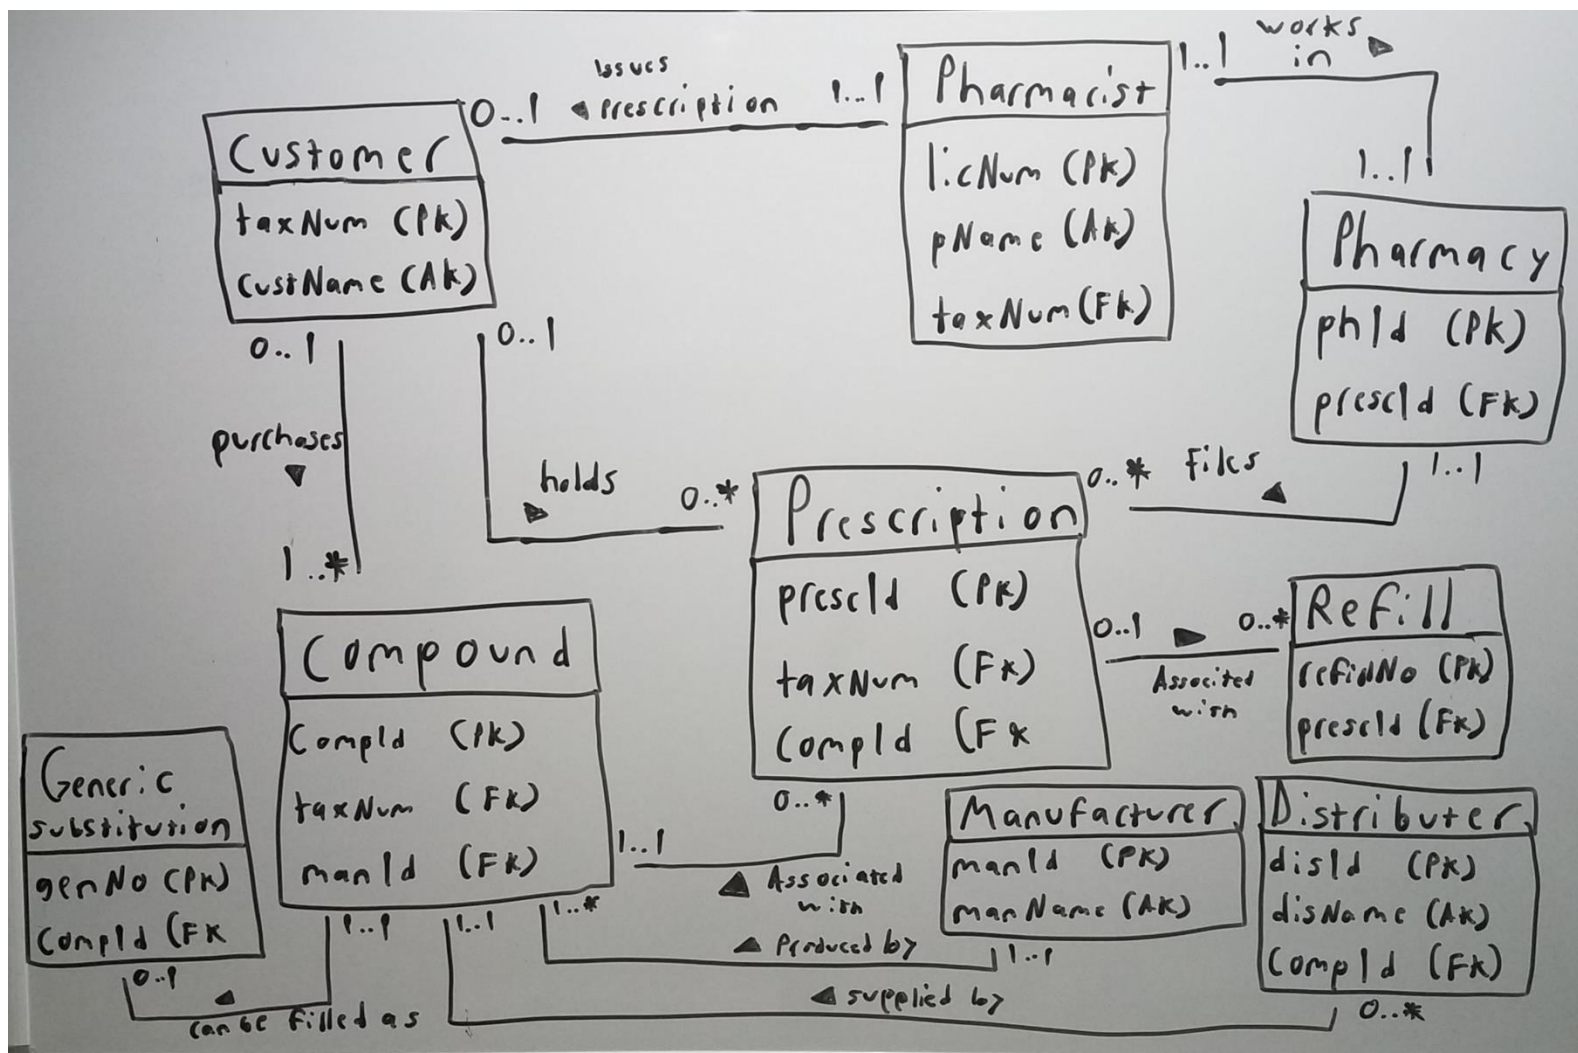 Customer
taxNum (PK)
custName (AK)
0..1
Issues
◄ Prescription
1..1
Pharmacist
licNum (PK)
pName (AK)
taxNum (FK)
1..1
works
in ►
1..1
Pharmacy
phId (PK)
prescId (FK)
0..1
purchases
▼
1..*
0..1
holds
►
0..*
Prescription
prescId (PK)
taxNum (FK)
CompId (FK
0..*
Files
◄
1..1
0..1
►
0..*
Associted
with
Refill
refidNo (PK)
prescId (FK)
Compound
CompId (PK)
taxNum (FK)
manId (FK)
0..*
1..1
▲ Associated
with
Generic
substitution
genNo (PK)
CompId (FK
0..1
1..1
◄
can be filled as
Manufacturer
manId (PK)
manName (AK)
1..*
◄ Produced by
1..1
Distributer
disId (PK)
disName (AK)
CompId (FK)
1..1
◄ supplied by
0..*